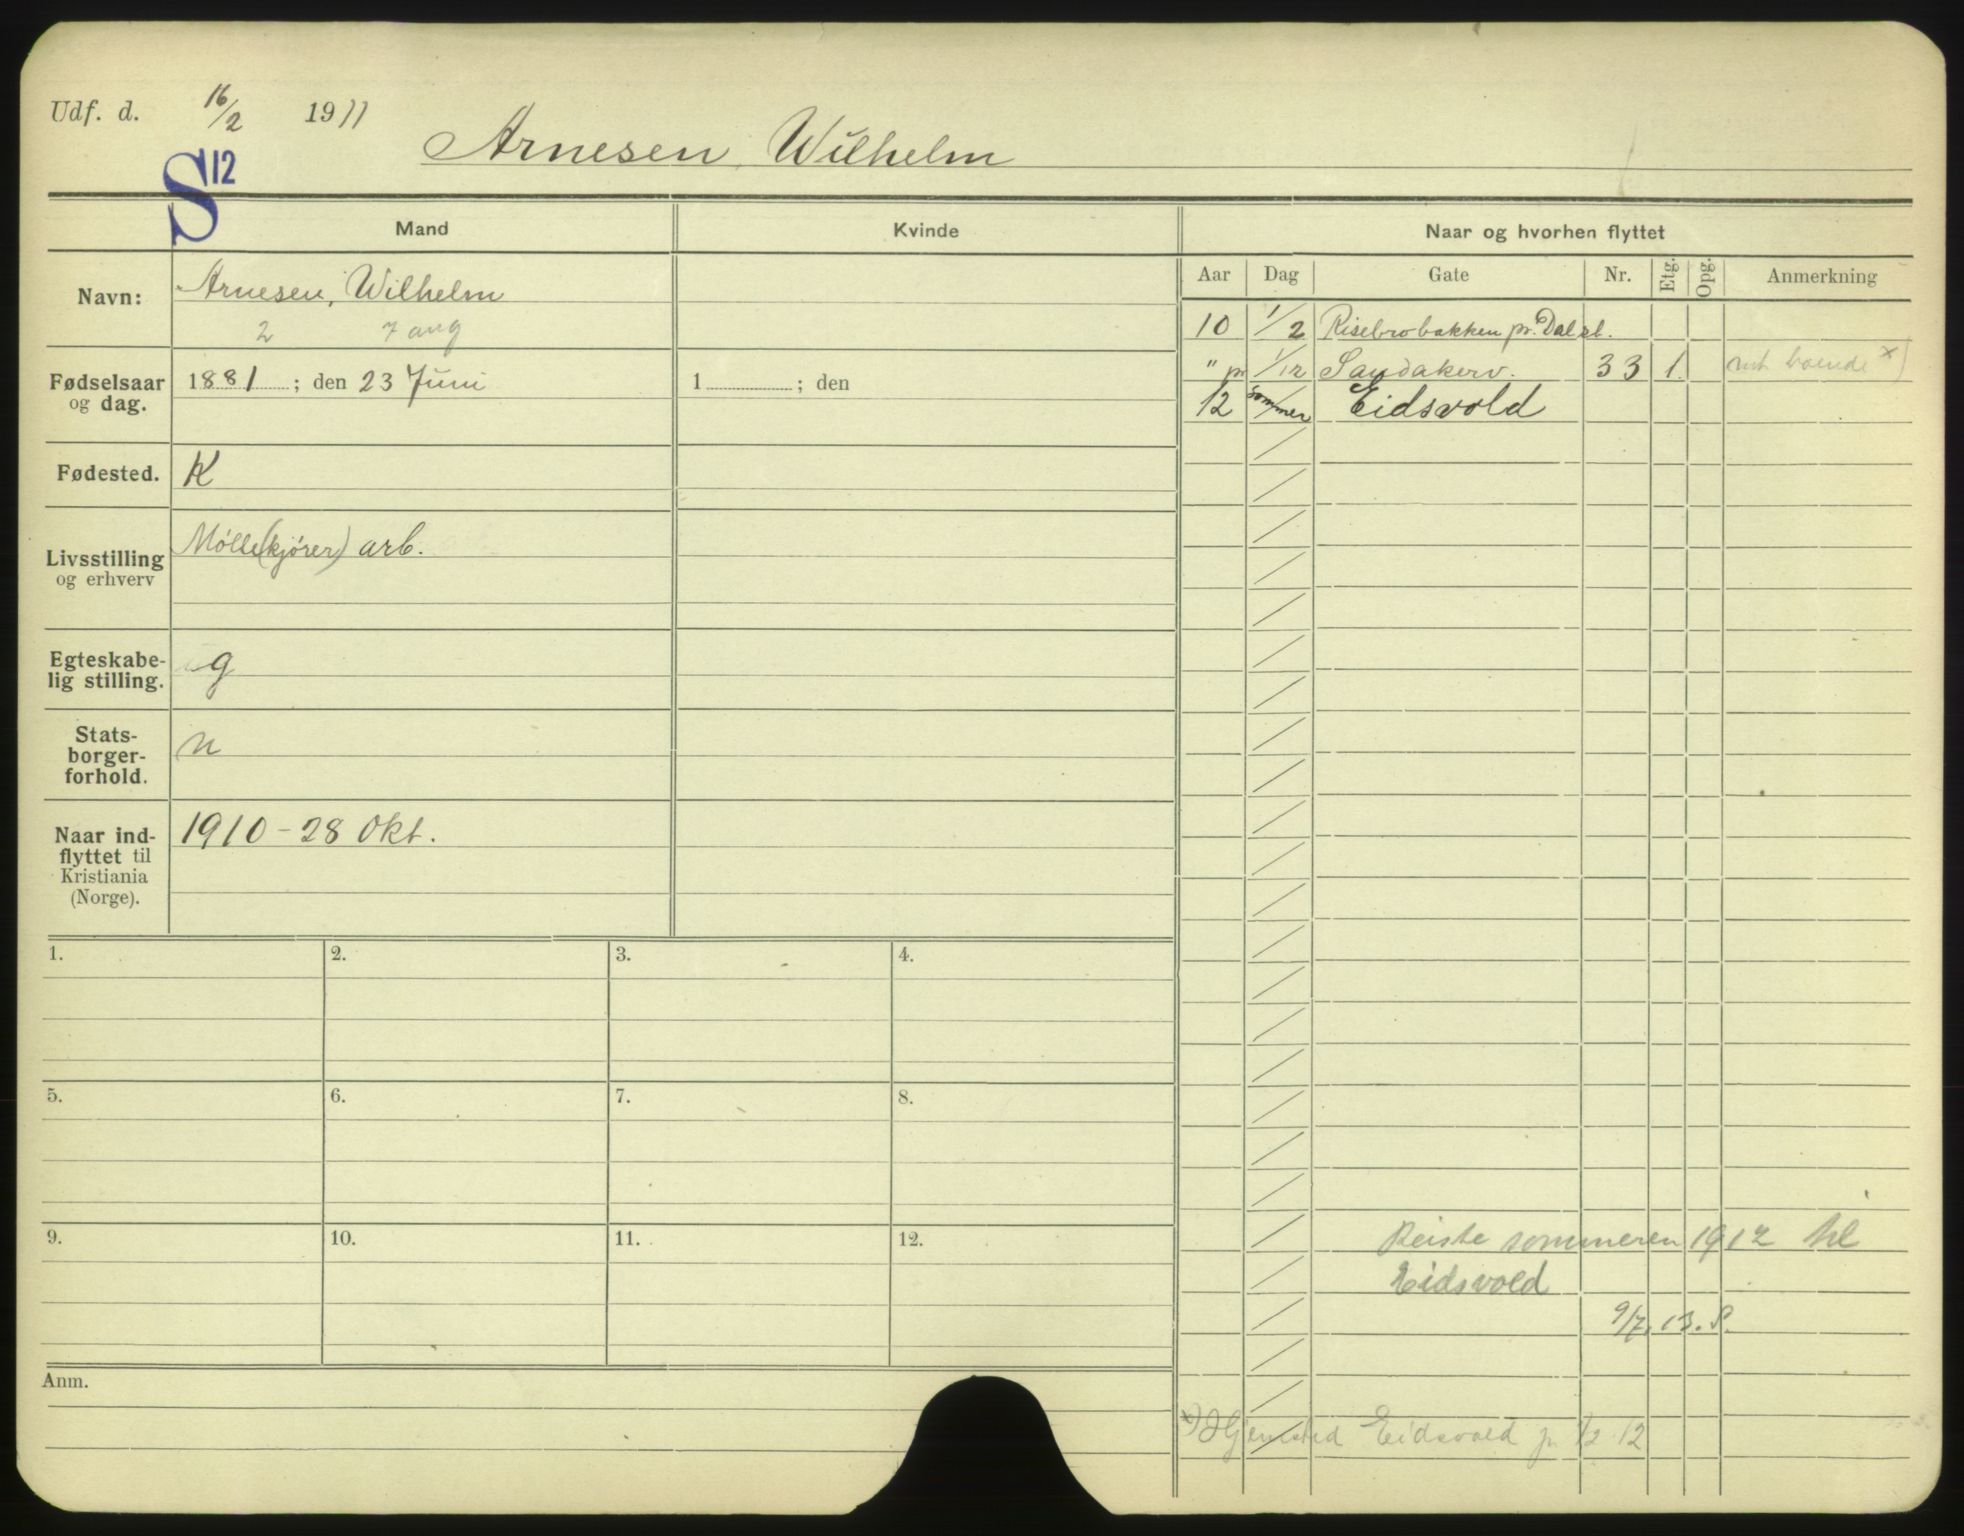 Udf. d. 16/2 1911
Arnesen, Wilhelm
S 12
Mand
Kvinde
Naar og hvorhen flyttet
Navn: Arnesen, Wilhelm
2 7 aug
Fødselsaar og dag. 1881 ; den 23 Juni
1 ; den
Fødested. K
Livsstilling og erhverv Mølle(kjører) arb.
Egteskabe-
lig stilling. g
Stats-
borger-
forhold. n
Naar ind-
flyttet til
Kristiania
(Norge). 1910 - 28 Okt.
1. 2. 3. 4.
5. 6. 7. 8.
9. 10. 11. 12.
Anm.
Aar Dag Gate Nr. Etg. Opg. Anmerkning
10 1/2 Risebrobakken pr. Dal st.
" pr 1/12 Sandakerv. 33 1. boende x)
12 sommer Eidsvold
Reiste sommeren 1912 til
Eidsvold
9/7. 13. S.
x) Hjemsted Eidsvold pr 1/2 12